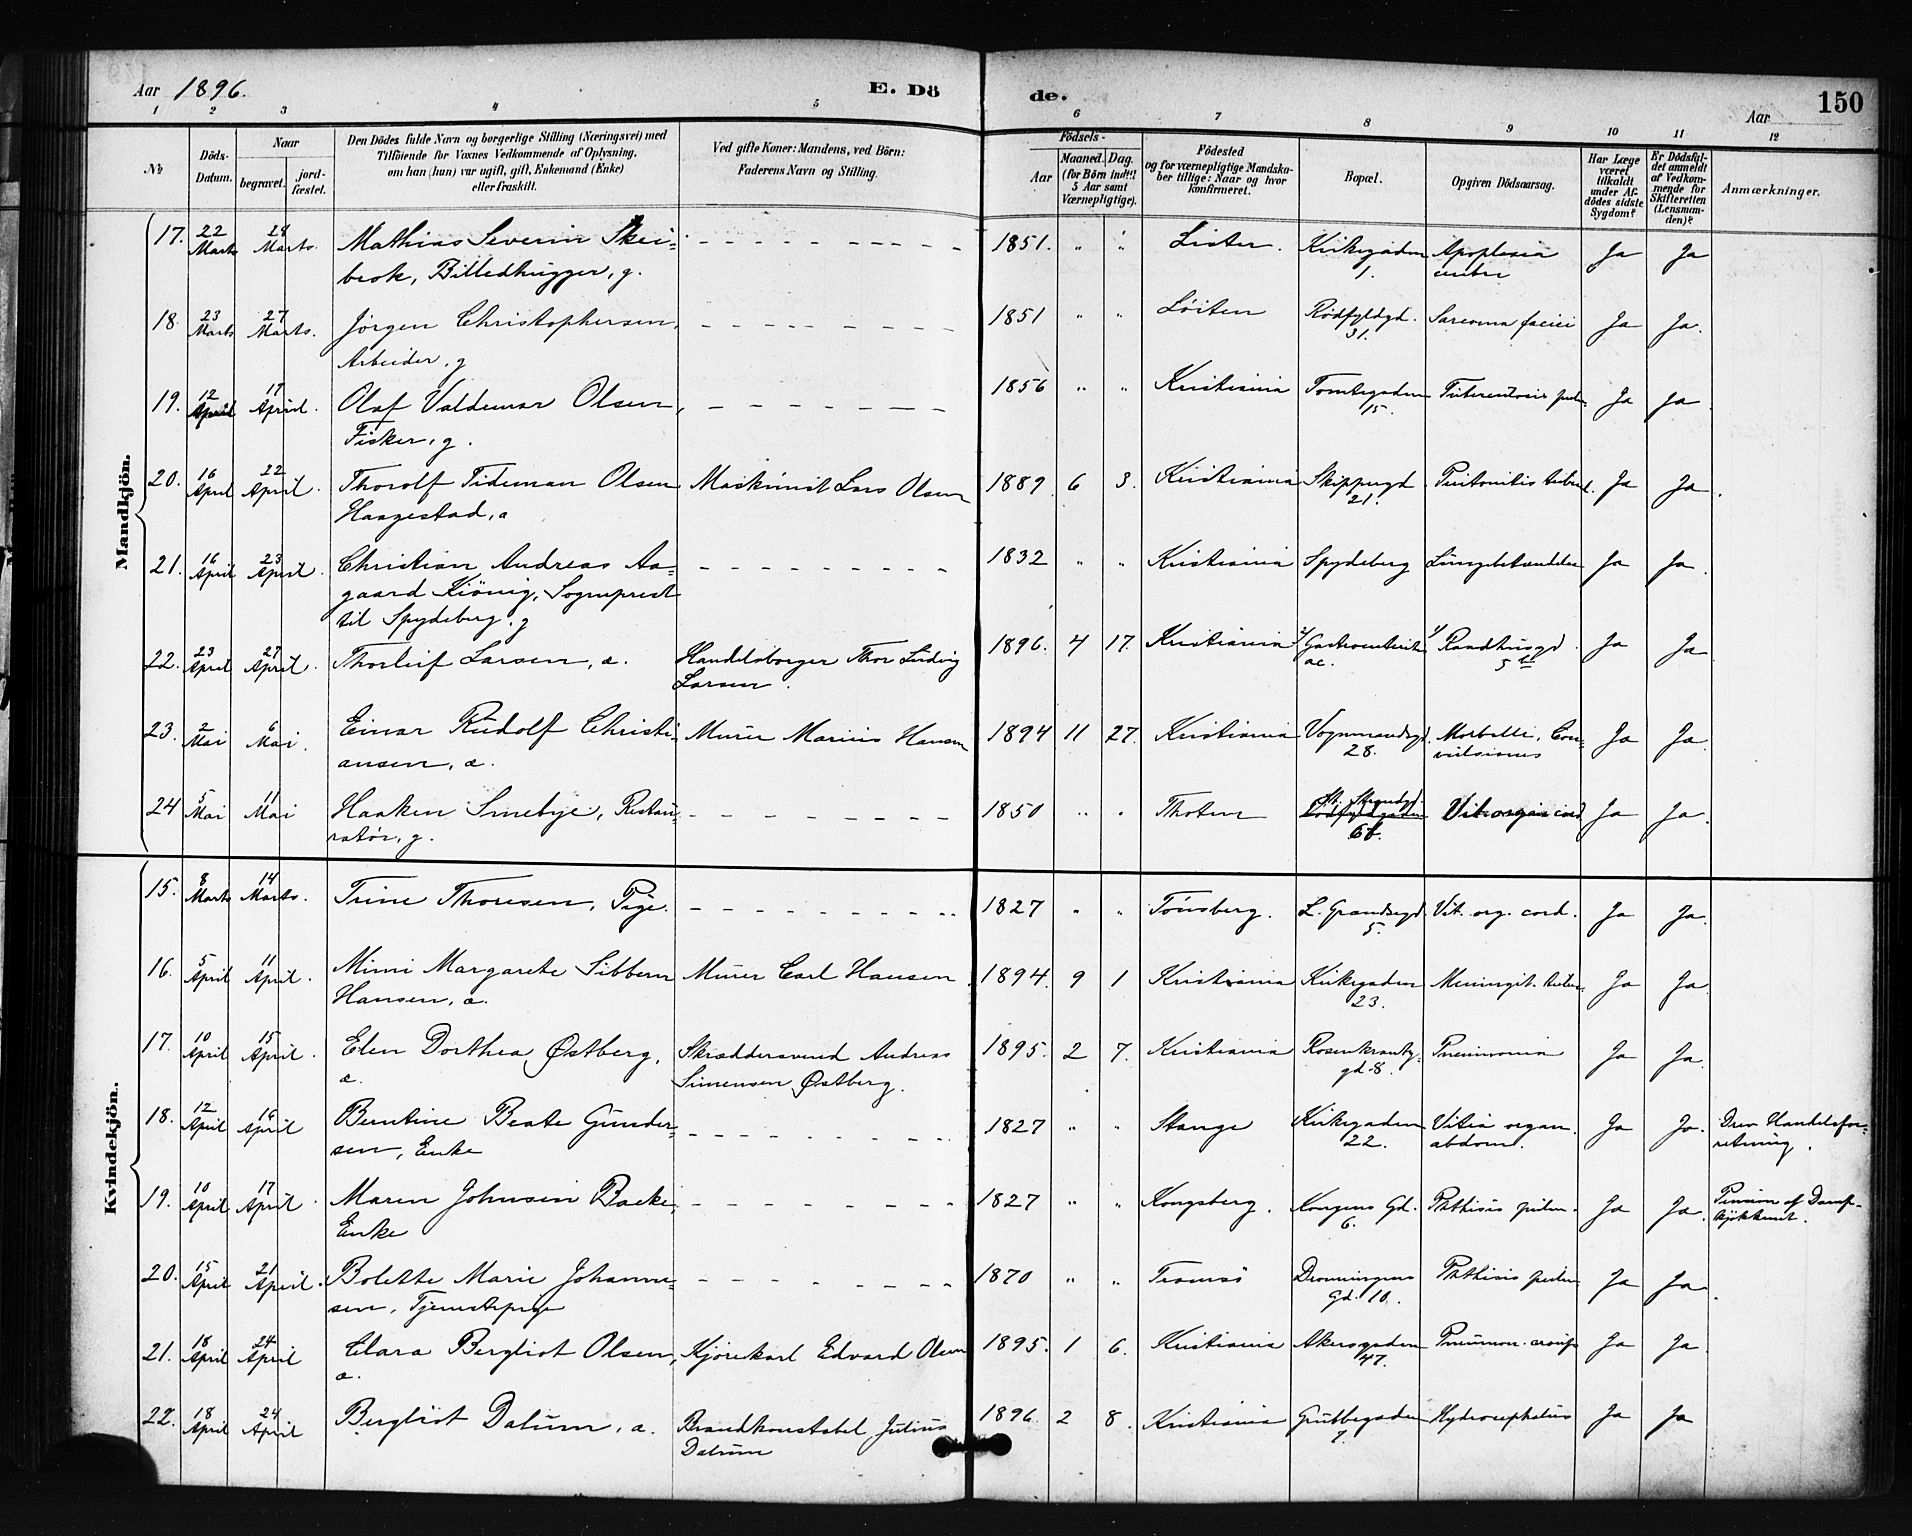 Aar 1896.
E. Dö
de.
Aar
150
1 2 3 4 5 6 7 8 9 10 11 12
No
Döds-Datum.
Naar
begravet.
jord-fæstet.
Den Dödes fulde Navn og borgerlige Stilling (Næringsvei) med
Tilföiende for Voxnes Vedkommende af Oplysning,
om han (hun) var ugift, gift, Enkemand (Enke)
eller fraskilt.
Ved gifte Koner: Mandens, ved Börn:
Faderens Navn og Stilling.
Födsels-
Aar
Maaned. Dag.
(for Börn indtil
5 Aar samt
Værnepligtige).
Födested
og for værnepligtige Mandska-
ber tillige: Naar og hvor
konfirmeret.
Bopæl.
Opgiven Dödsaarsag.
Har Læge
været
tilkaldt
under Af-
dödes sidste
Sygdom?
Er Dödsfal-
det anmeldt
af Vedkom-
mende for
Skifteretten
(Lensman-
den)?
Anmærkninger.
Mandkjön.
17. 22 Marts 28 Marts. Mathias Severin Skei- 1851. " " Lister. Kirkegaden Apoplexia Ja Ja
beok, Billedhugger, g. 1.
18. 23 Marts 27 Marts. Jörgen Christophersen, 1851 " " Löiten Rödfyldgd. Sarcoma faciei Ja Ja.
Arbeider, g 31.
19. 12 April 17 April. Olaf Valdemar Olsen, 1856 " " Kristiania Tomtegaden Tuberculosis pulm. Ja Ja
Fisker, g. 15.
20. 16 April 22 April. Thorolf Tideman Olsen Maskinist Lars Olsen 1889. 6 3. Kristiania Skippergd Peritonitis tuberd. Ja Ja.
Haagestad, a 21.
21. 16 April 23 April. Christian Andreas Aa- 1832 " " Kristiania Spydeberg Lungebetændelse Ja Ja.
gaard Kiönig, Sognepræst
til Spydeberg. g
22. 23 April 27 April. Thorleif Larsen, a. Handelsborger Thor Ludvig 1896. 4 17. Kristiania Gastroenterit Raadhusgd. Ja Ja
Larsen. ac. 5
23. 2 Mai 6 Mai. Einar Rudolf Christi- Murer Marius Hansen 1894 11 27. Kristiania Vognmandsgd. Morbilli, Con- Ja Ja.
ansen, a. 28. vulsiones
24 5 Mai 11 Mai Haaken Smebye, Restau- 1850 " " Thoten St. Strandgd. Vit. organ cord Ja Ja.
ratör, g. Rödfyldgaden
Kvindekjön.
15. 8 Marts 14 Marts. Trine Thoresen, Pige. 1827 " " Tönsberg. L. Grændsegd. Vit. org. cord. Ja Ja.
5.
16. 5 April 11 April. Mimi Margarete Sibbern Murer Carl Hansen. 1894. 9 1 Kristiania Kirkegaden Meningit. tuber. Ja Ja.
Hansen, a. 23.
17. 10 April 15 April. Elen Dorthea Østberg, Skræddersvend Andreas 1895. 2 7. Kristiania Rosenkrantz- Pneumonia Ja Ja.
a. Simensen Østberg. gd. 8.
18. 12 April 16 April Berntine Beate Gunder- 1827 " " Stange Kirkegaden Vitia organ. Ja Ja. Drev Handelsfor-
sen, Enke 22. abdom. retning.
19. 10 April 17 April. Maren Johnsen Backe, 1827 " " Kongsberg. Kongens Gd. Phthisis pulm. Ja Ja. Pension af Damp-
Enke 6. kjökkenet.
20. 15 April 21 April. Bolette Marie Johanne- 1870 " " Tromsö Dronningens Phthisis pulm Ja Ja.
sen, Tjenestepige Gd. 10.
21. 18 April 24 April Clara Bergliot Olsen, Kjörekarl Edvard Olsen 1895. 1 6. Kristiania Akersgaden Pneumon. croup. Ja Ja.
a. 47.
22. 18 April 24 April Bergliot Dalum, a. Brandkonstabel Julius 1896. 2 8. Kristiania Grubbegaden Hydrocephalus Ja Ja
Dalum 7.